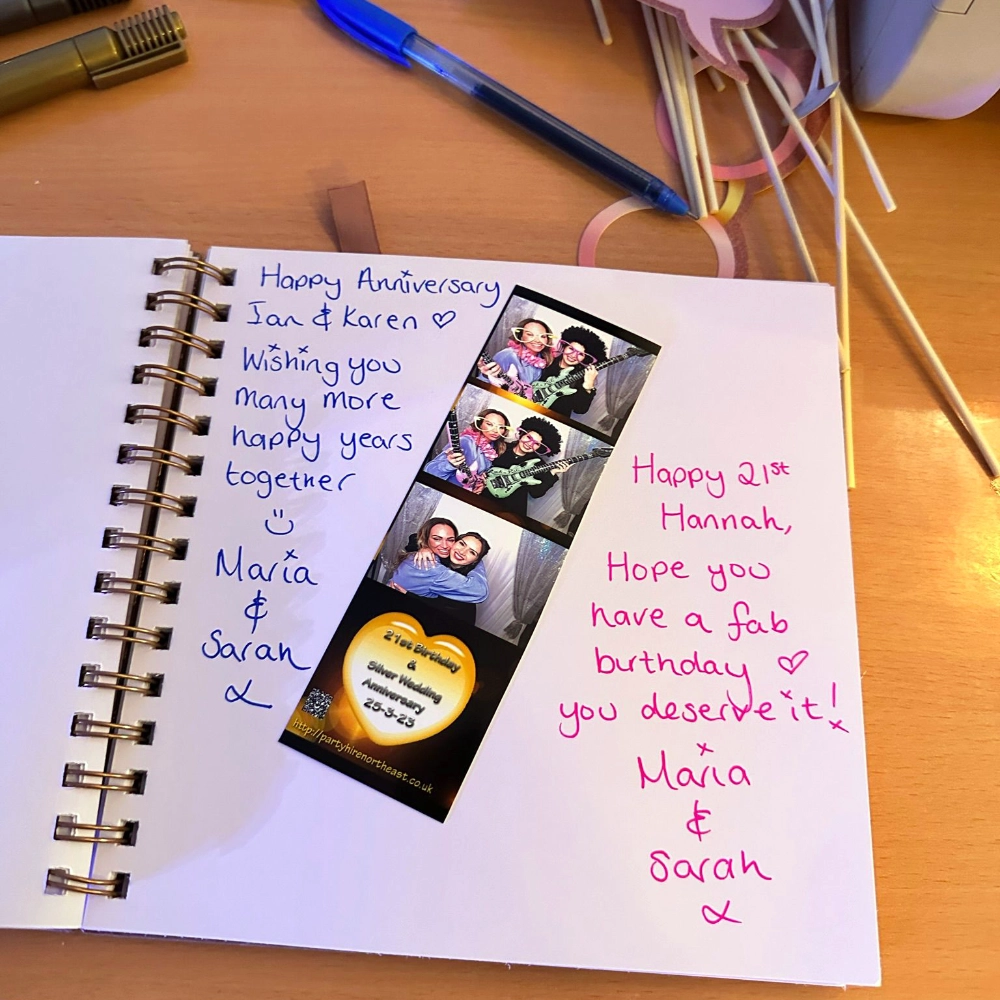 Happy Anniversary
Ian & Karen ♡
Wishing you
many more
happy years
together
Maria
&
Sarah
x
21st Birthday
&
Silver Wedding
Anniversary
25-3-23
http://partyhirenortheast.co.uk
Happy 21st
Hannah,
Hope you
have a fab
burthday ♡
you deserve it! x
Maria
&
Sarah
x